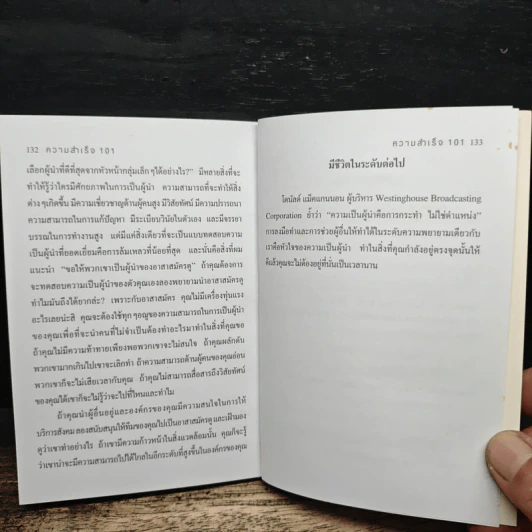 132 ความสำเร็จ 101
เลือกผู้นำที่ดีที่สุดจากหัวหน้ากลุ่มเล็กๆได้อย่างไร?” มีหลายสิ่งที่จะ
ทำให้รู้ว่าใครมีศักยภาพในการเป็นผู้นำ ความสามารถที่จะทำให้สิ่ง
ต่างๆเกิดขึ้น มีความเชี่ยวชาญด้านผู้คนสูง มีวิสัยทัศน์ มีความปรารถนา
ความสามารถในการแก้ปัญหา มีระเบียบวินัยในตัวเอง และมีจรรยา
บรรณในการทำงานสูง แต่มีแค่สิ่งเดียวที่จะเป็นแบบทดสอบความ
เป็นผู้นำที่ยอดเยี่ยมคือการล้มเหลวที่น้อยที่สุด และนั่นคือสิ่งที่ผม
แนะนำ “ขอให้พวกเขาเป็นผู้นำของอาสาสมัครดู” ถ้าคุณต้องการ
จะทดสอบความเป็นผู้นำของตัวคุณเองลองพยายามนำอาสาสมัครดู
ทำไมมันถึงได้ยากล่ะ? เพราะกับอาสาสมัคร คุณไม่มีเครื่องทุ่นแรง
อะไรเลยน่ะสิ คุณจะต้องใช้ทุกๆอณูของความสามารถในการเป็นผู้นำ
ของคุณเพื่อที่จะนำคนที่ไม่จำเป็นต้องทำอะไรมาทำในสิ่งที่คุณขอ
ถ้าคุณไม่มีความท้าทายเพียงพอพวกเขาจะไม่สนใจ ถ้าคุณผลักดัน
พวกเขามากเกินไปเขาจะเลิกทำ ถ้าความสามารถด้านผู้คนของคุณอ่อน
พวกเขาก็จะไม่เสียเวลากับคุณ ถ้าคุณไม่สามารถสื่อสารถึงวิสัยทัศน์
ของคุณได้เขาก็จะไม่รู้ว่าจะไปที่ไหนและทำไม
ถ้าคุณนำผู้อื่นอยู่และองค์กรของคุณมีความสนใจในการให้
บริการสังคม ลองสนับสนุนให้ทีมของคุณไปเป็นอาสาสมัครดูและเฝ้ามอง
ดูว่าเขาทำอย่างไร ถ้าเขามีความก้าวหน้าในสิ่งแวดล้อมนั้น คุณก็จะรู้
ว่าเขาน่าจะมีความสามารถไปได้ไกลในอีกระดับที่สูงขึ้นในองค์กรของคุณ
ความสำเร็จ 101 133
มีชีวิตในระดับต่อไป
โดนัลด์ แม็คแกนนอน ผู้บริหาร Westinghouse Broadcasting
Corporation ย้ำว่า “ความเป็นผู้นำคือการกระทำ ไม่ใช่ตำแหน่ง”
การลงมือทำและการช่วยผู้อื่นให้ทำได้ในระดับความพยายามเดียวกับ
เราคือหัวใจของความเป็นผู้นำ ทำในสิ่งที่คุณกำลังอยู่ตรงจุดนั้นให้
ดีแล้วคุณจะไม่ต้องอยู่ที่นั่นเป็นเวลานาน